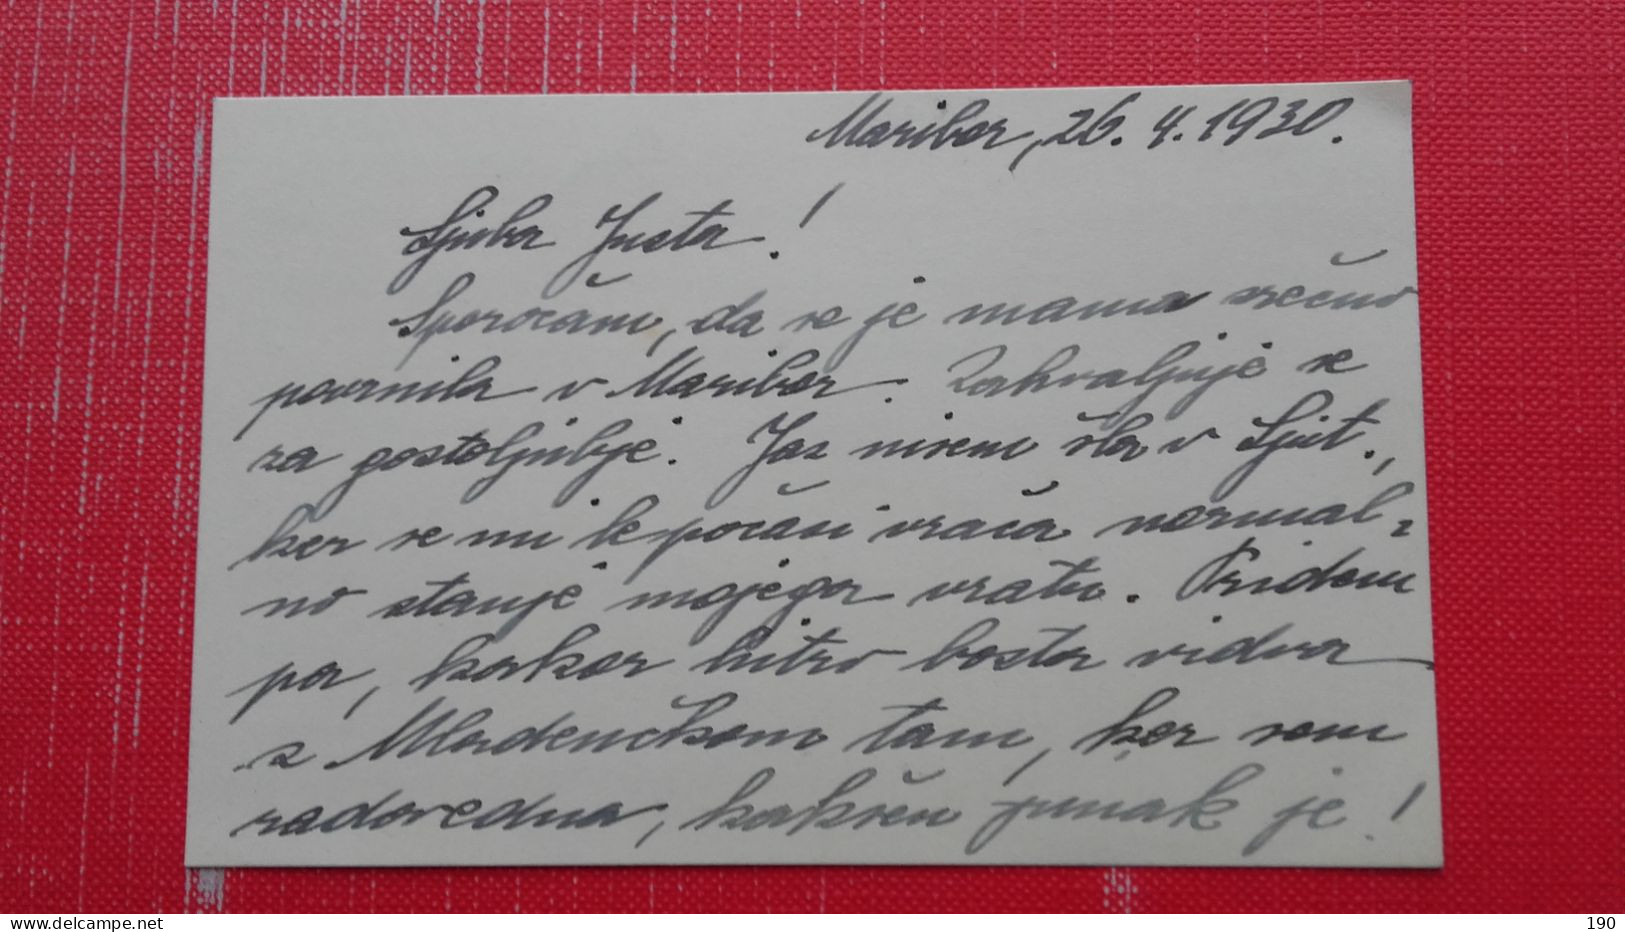 Maribor, 26. 4. 1930.
Ljuba Justa!
Sporočam, da se je mama srečno
povrnila v Maribor. Zahvaljuje se
za gostoljubje. Jaz nisem šla v Ljut.,
ker se mi le počasi vrača normal=
no stanje mojega vratu. Pridem
pa, kakor hitro bosta vidva
z Mladenčkom tam, ker sem
radovedna, kakšen junak je!
delcampe.net
Afr
190